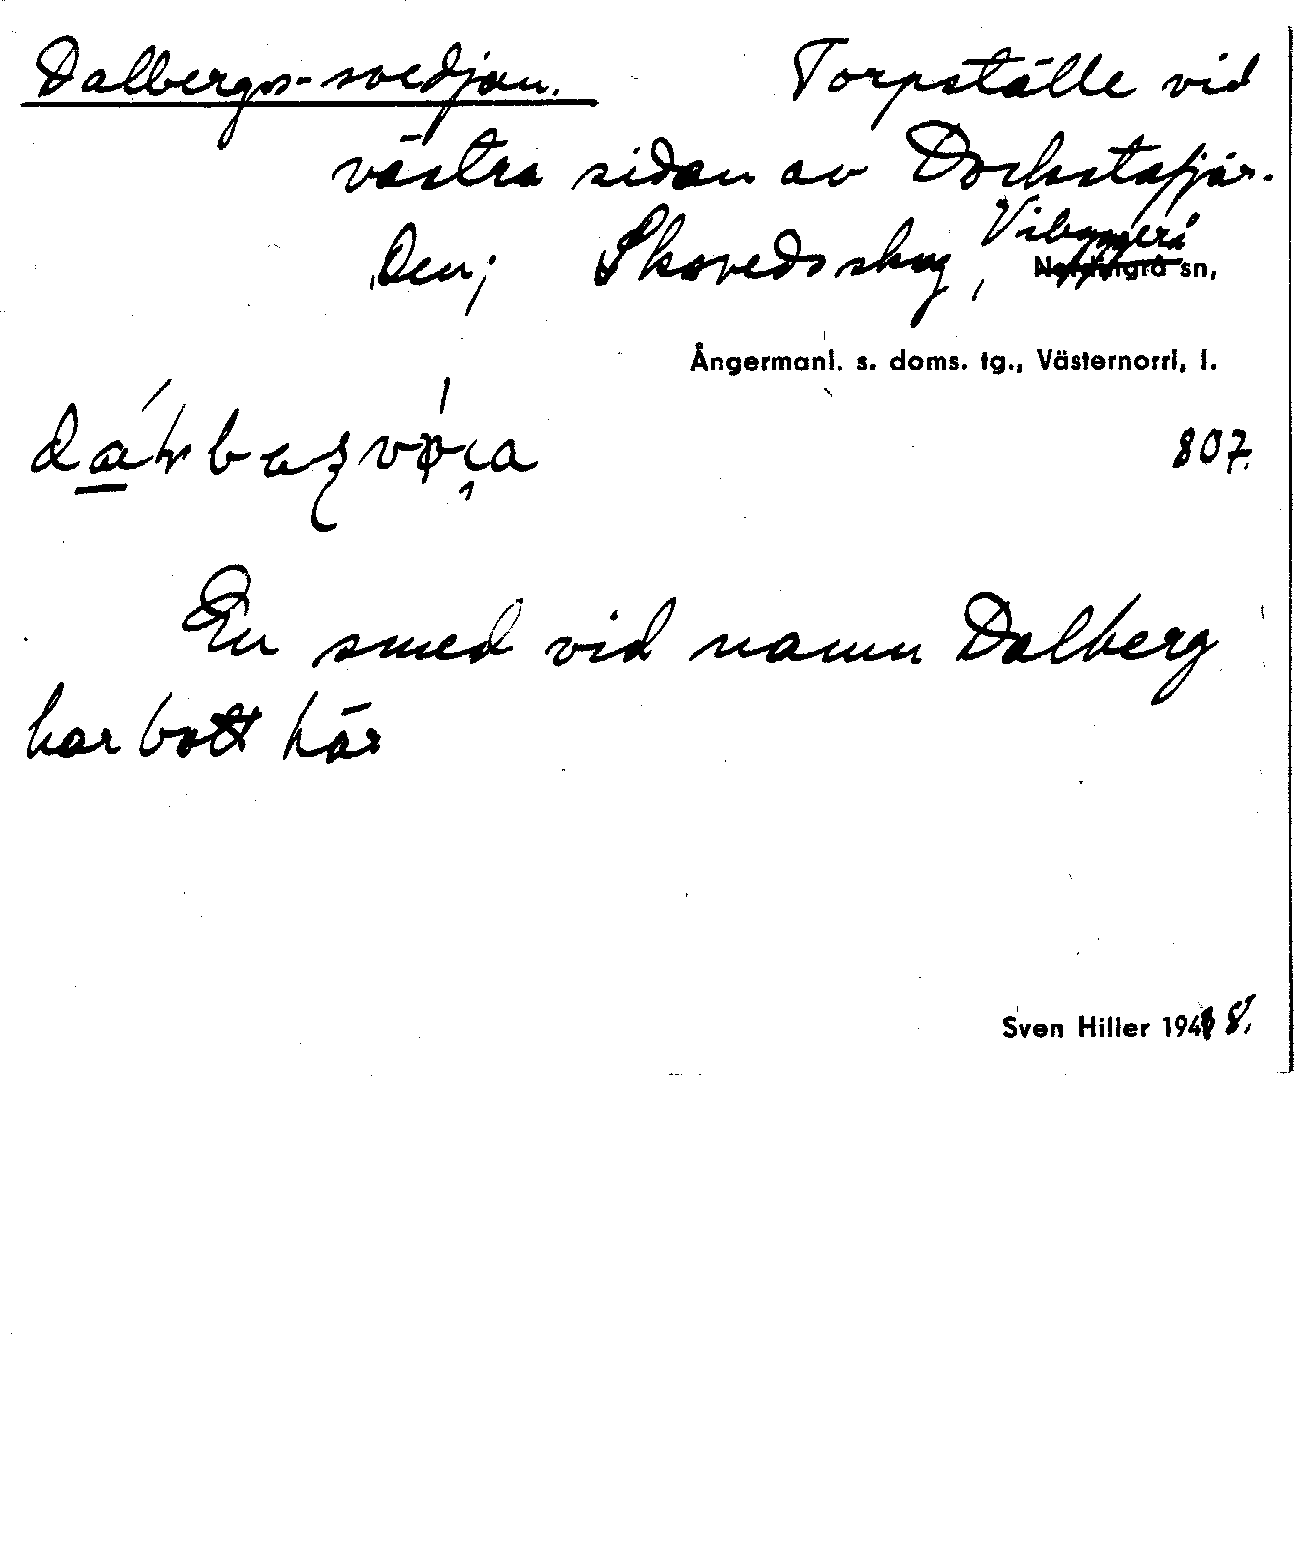 Dalbergs-svedjan. Torpställe vid
västra sidan av Dockstafjär-
den; Skovedsskog, Vibyggerå
Nordingrå sn,
Ångermanl. s. doms. tg., Västernorrl, l.
807.
En smed vid namn Dalberg
har bott här
Sven Hiller 1948.